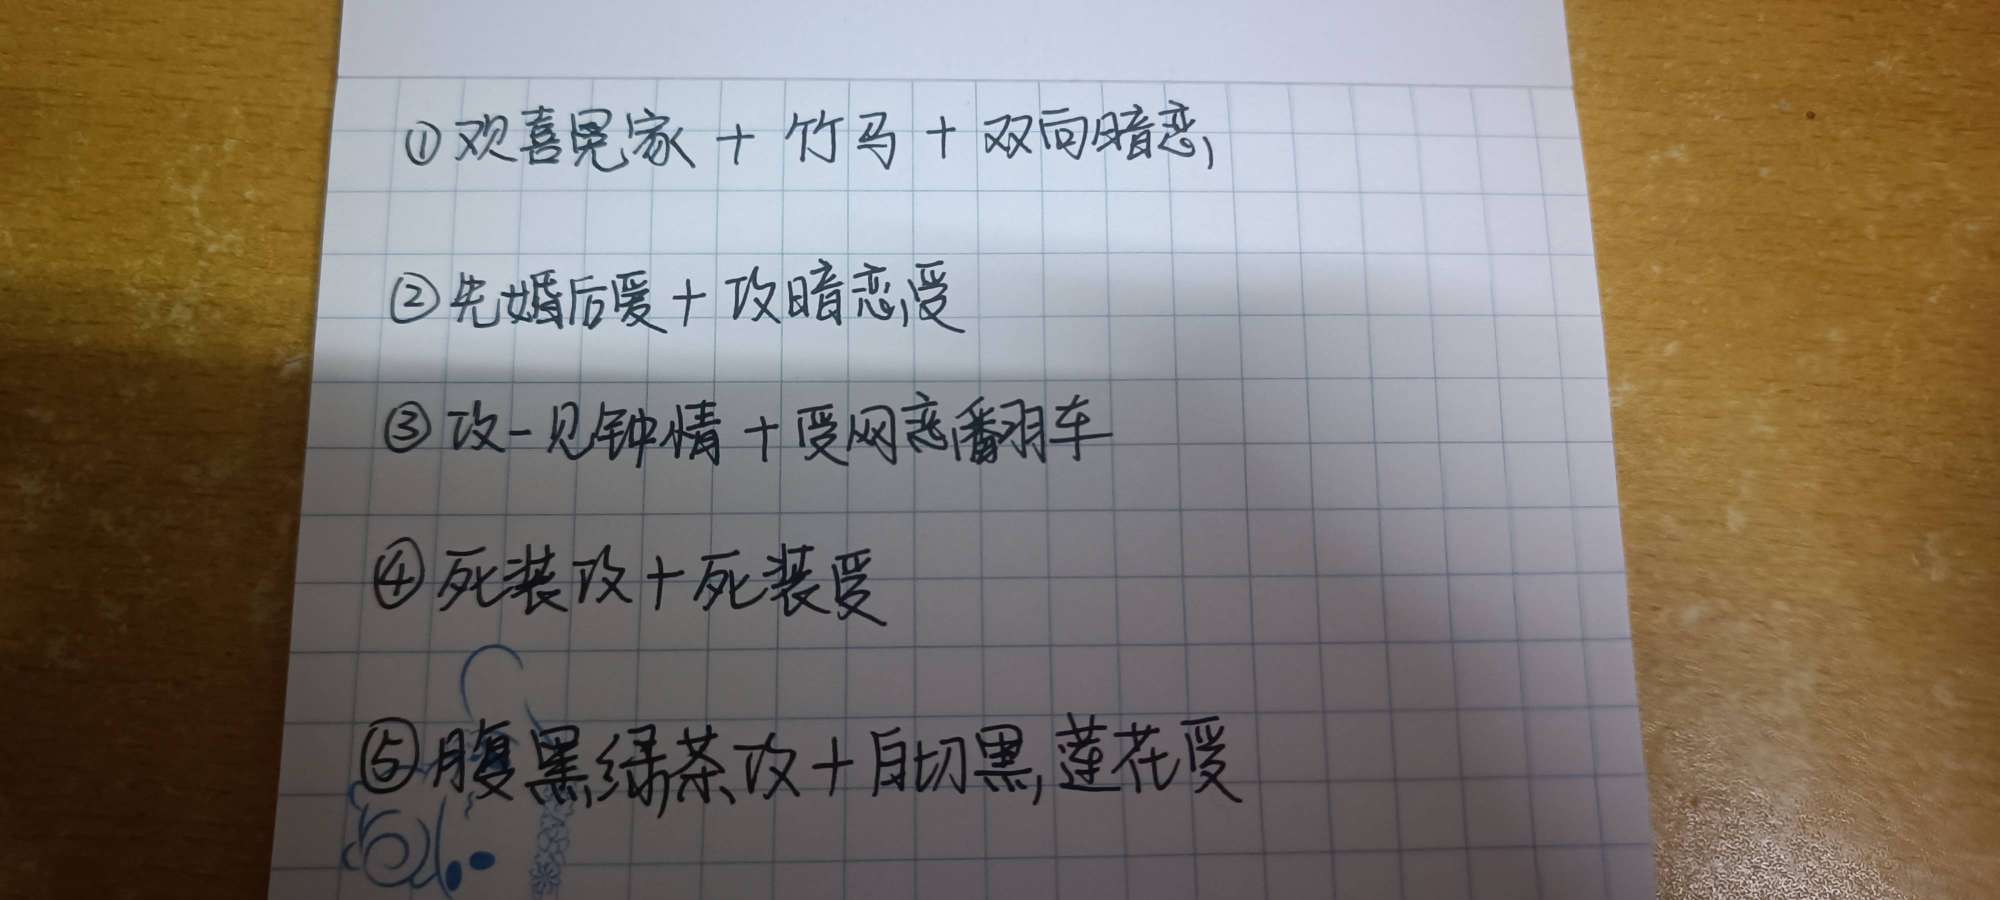 ①欢喜冤家 + 竹马 + 双向暗恋
②先婚后爱 + 攻暗恋受
③攻一见钟情 + 受网恋翻车
④死装攻 + 死装受
⑤腹黑绿茶攻 + 白切黑莲花受